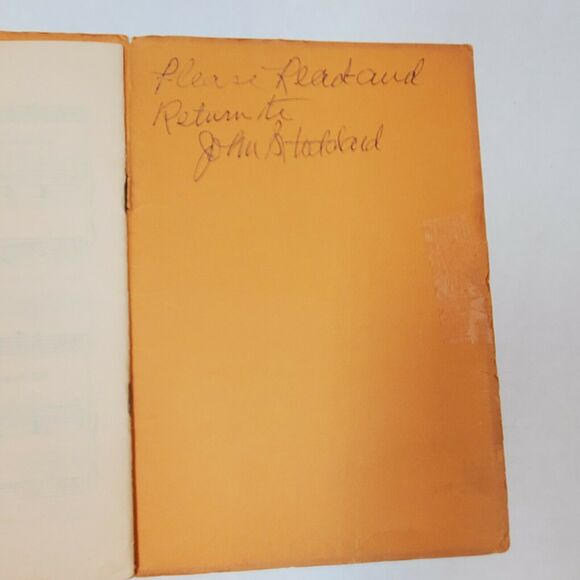 Please Read and
Return to
John Stoddard